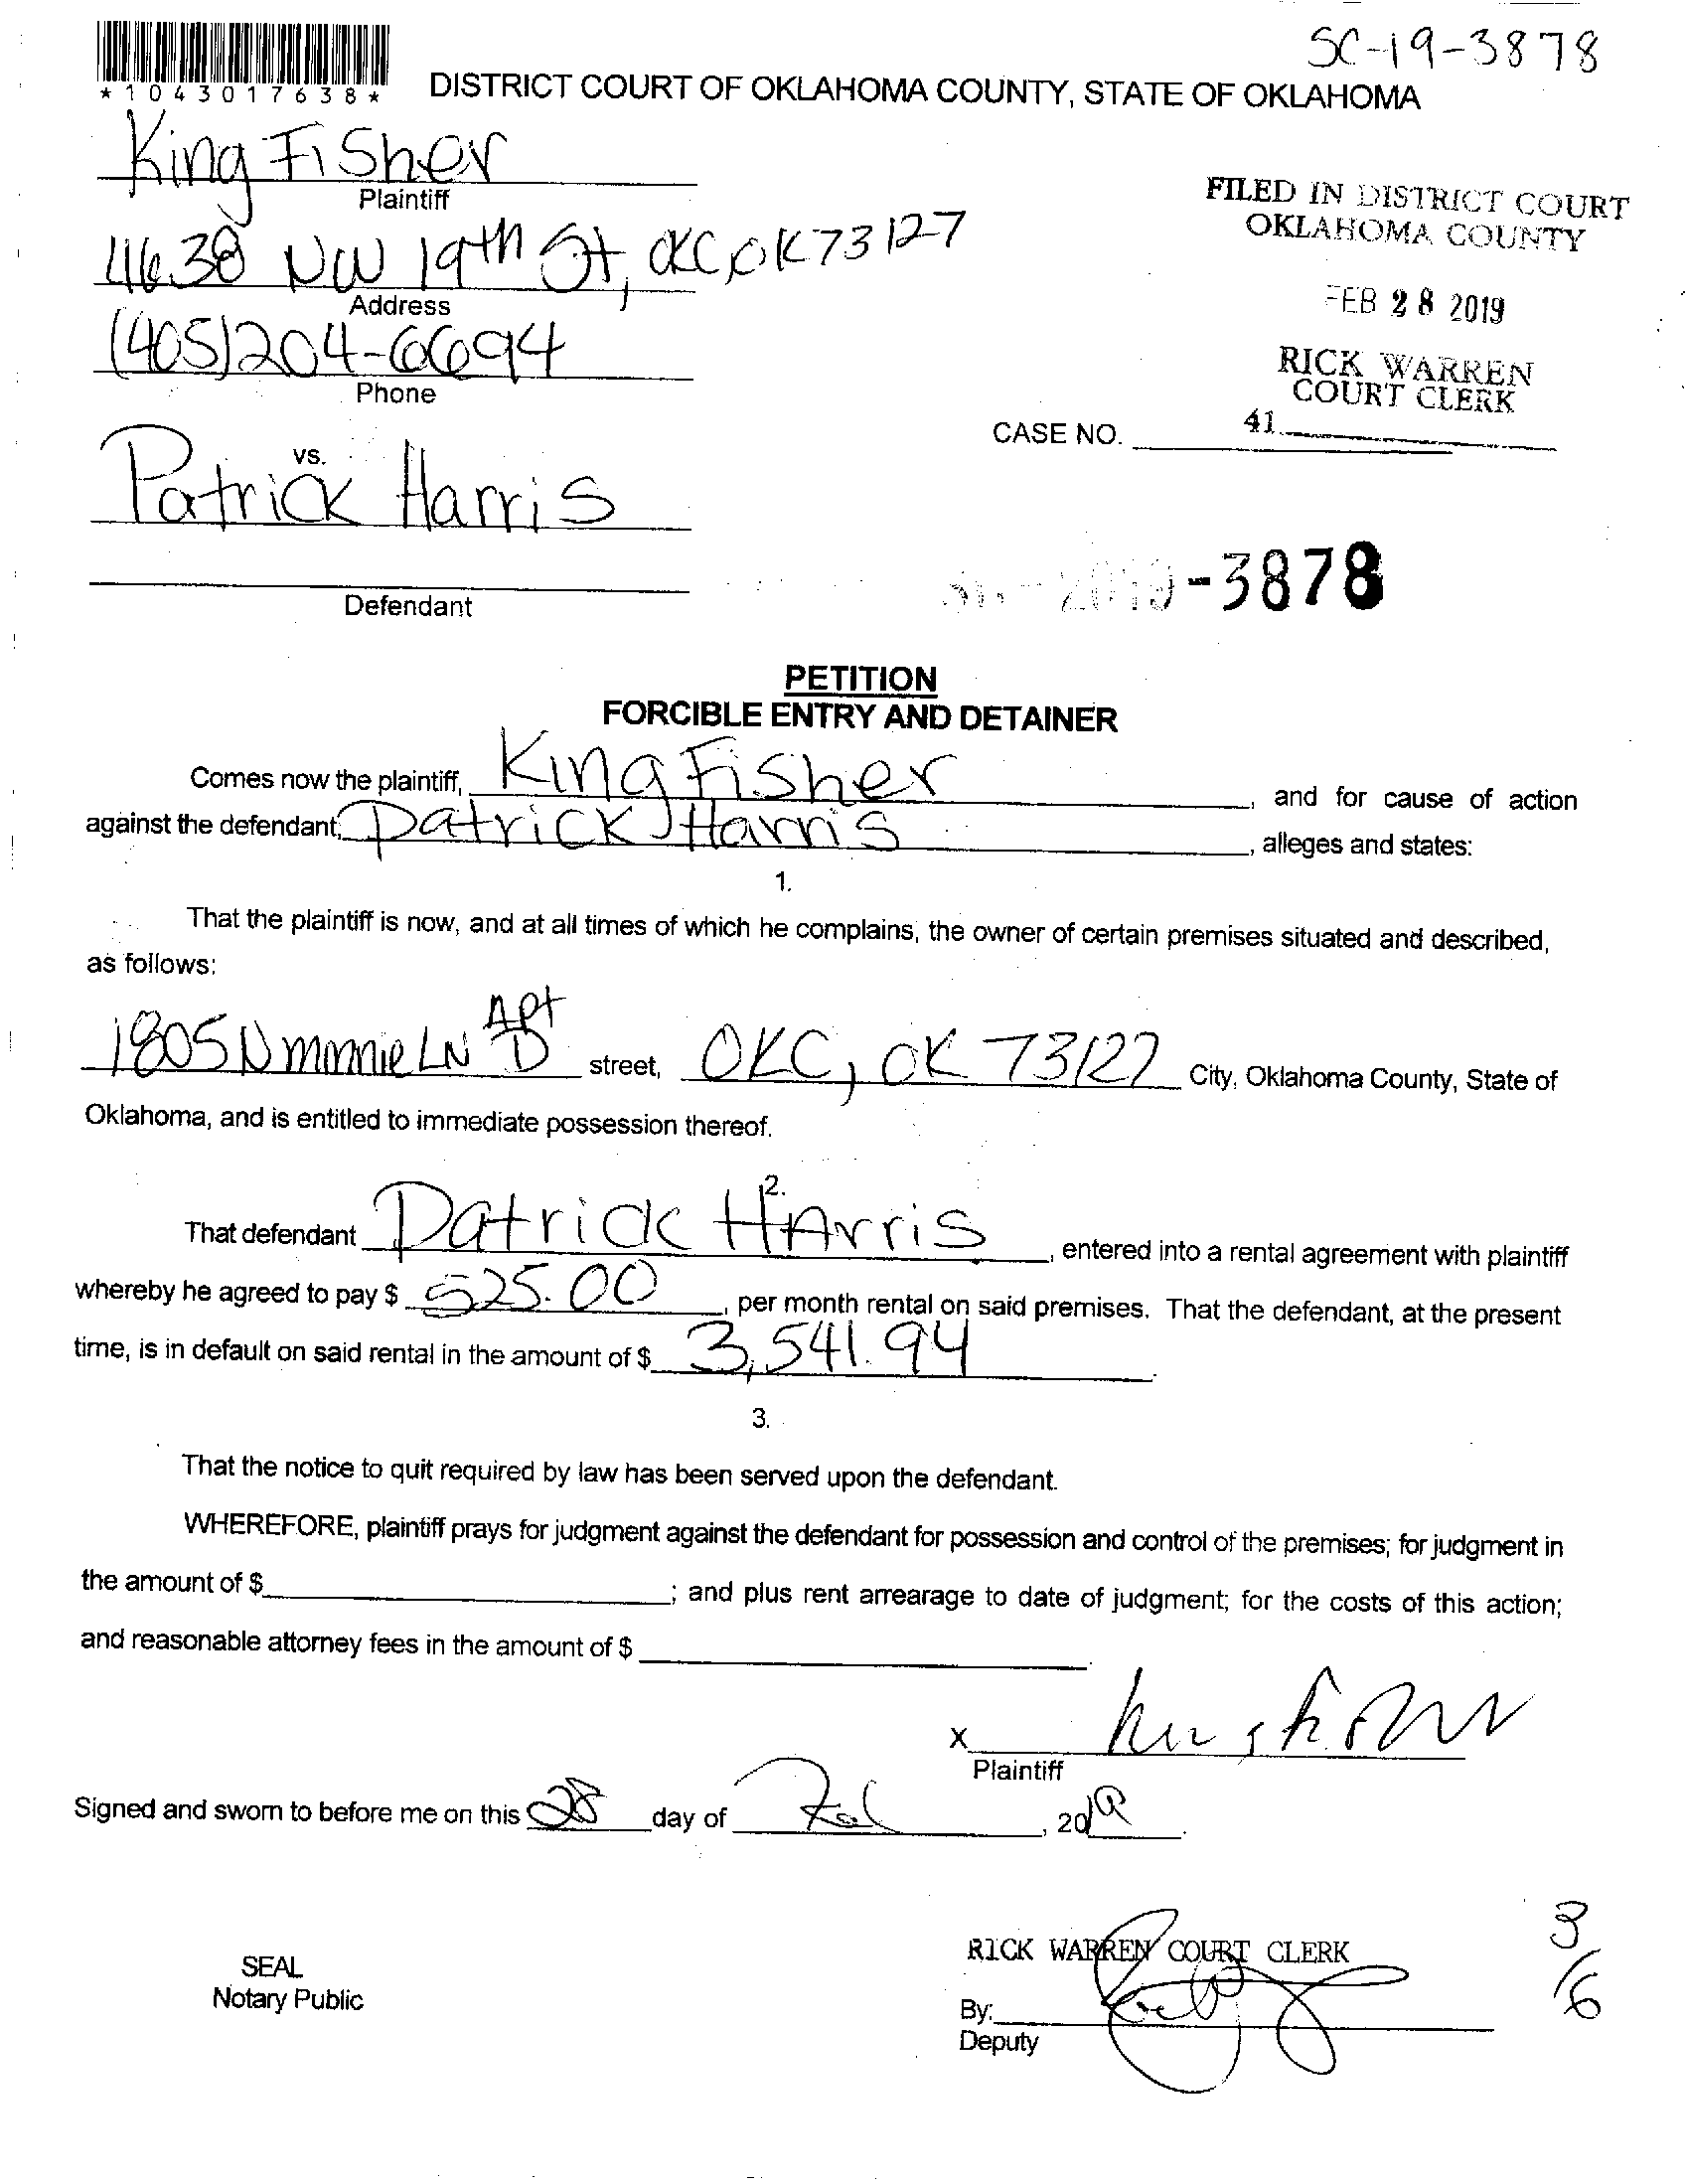 SC-19-3878
*1043017638*
DISTRICT COURT OF OKLAHOMA COUNTY, STATE OF OKLAHOMA
King Fisher
Plaintiff
4638 NW 19th St, OKC, OK 73127
Address
(405)204-6694
Phone
FILED IN DISTRICT COURT
OKLAHOMA COUNTY
FEB 28 2019
RICK WARREN
COURT CLERK
41
CASE NO.
vs.
Patrick Harris
Defendant
-2019-3878
PETITION
FORCIBLE ENTRY AND DETAINER
Comes now the plaintiff, King Fisher, and for cause of action
against the defendant, Patrick Harris, alleges and states:
1.
That the plaintiff is now, and at all times of which he complains, the owner of certain premises situated and described,
as follows:
1805 N LN Apt D street, OKC, OK 73127 City, Oklahoma County, State of
Oklahoma, and is entitled to immediate possession thereof.
2.
That defendant Patrick HArris, entered into a rental agreement with plaintiff
whereby he agreed to pay $ 525.00, per month rental on said premises. That the defendant, at the present
time, is in default on said rental in the amount of $ 3,541.94.
3.
That the notice to quit required by law has been served upon the defendant.
WHEREFORE, plaintiff prays for judgment against the defendant for possession and control of the premises; for judgment in
the amount of $ ; and plus rent arrearage to date of judgment; for the costs of this action;
and reasonable attorney fees in the amount of $ .
X
Plaintiff
Signed and sworn to before me on this 28 day of Feb, 2019.
RICK WARREN COURT CLERK
SEAL
Notary Public
By:
Deputy
3/6